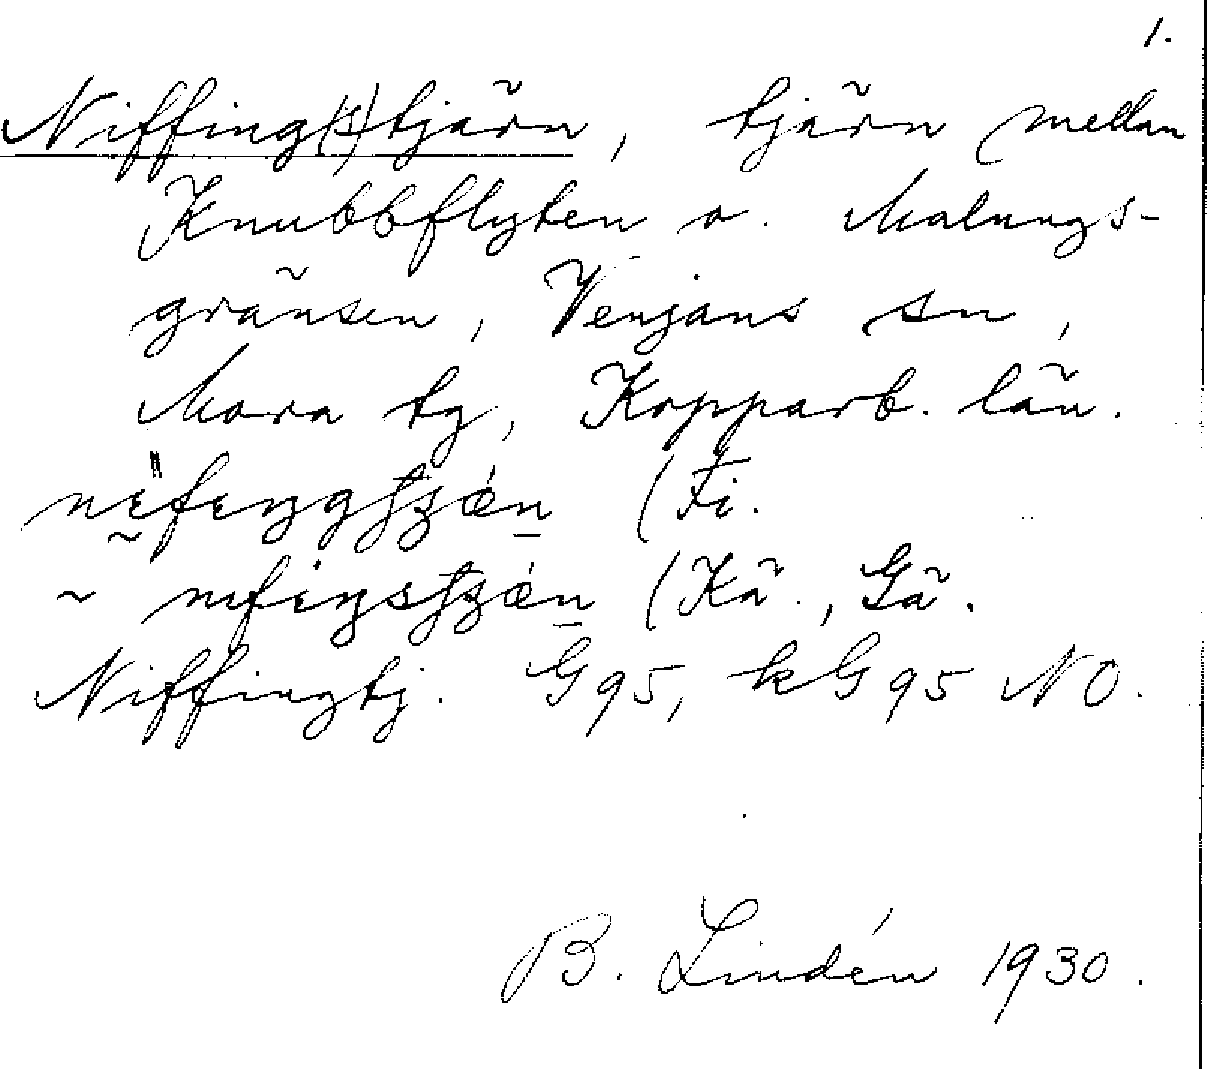 1.
Niffing(s)tjärn, tjärn mellan
Knubbflyten o. Malungs-
gränsen, Venjans sn,
Mora tg, Kopparb. län.
(Fi.
~ (Kä., Gä.
Niffingtj. G95, kG95 NO.
B. Lindén 1930.